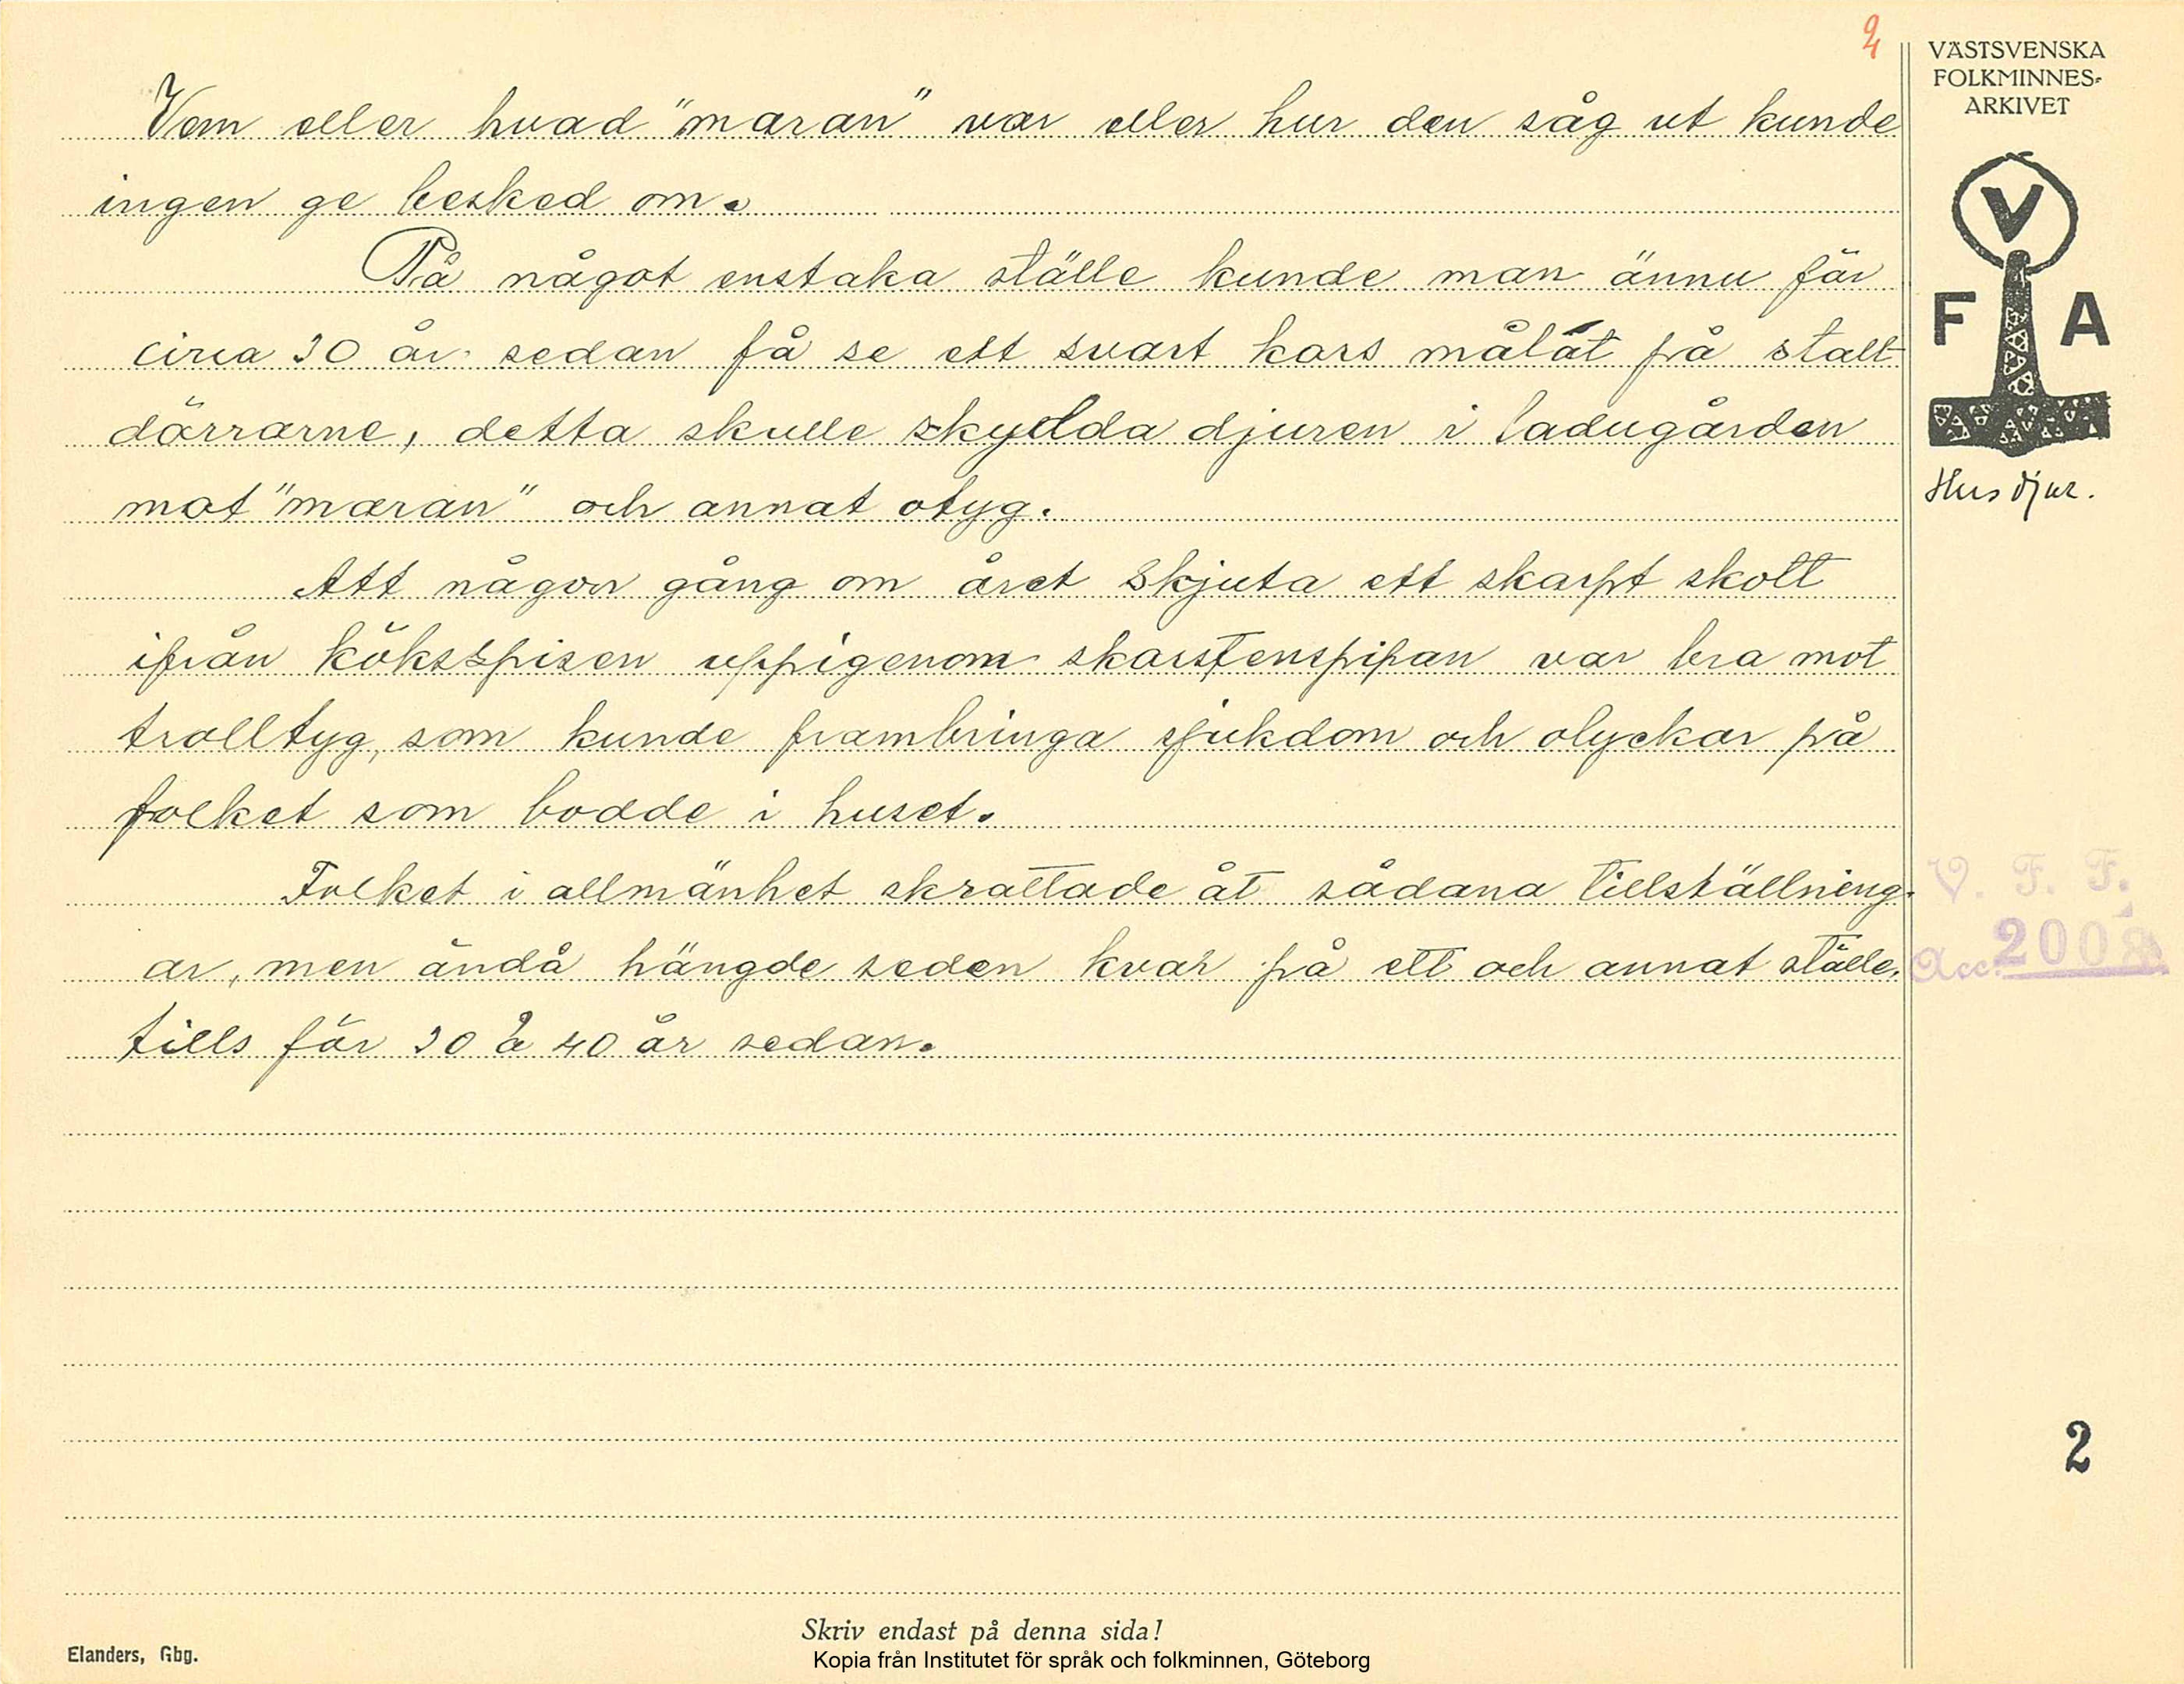 2
VÄSTSVENSKA
FOLKMINNES-
ARKIVET
V
F A
Husdjur.
Vem eller hvad "maran" var eller hur den såg ut kunde
ingen ge besked om.
På något enstaka ställe kunde man ännu för
circa 30 år sedan få se ett svart kors målat på stall-
dörrarne, detta skulle skydda djuren i ladugården
mot "maran" och annat otyg.
Att någon gång om året skjuta ett skarpt skott
ifrån köksspisen uppigenom skorstenspipan var bra mot
trolltyg, som kunde frambringa sjukdom och olyckor på
folket som bodde i huset.
Folket i allmänhet skrattade åt sådana tillställning-
ar, men ändå hängde seden kvar på ett och annat ställe,
tills för 30 à 40 år sedan.
V. F. F.
Acc. 2008
2
Skriv endast på denna sida!
Elanders, Gbg.
Kopia från Institutet för språk och folkminnen, Göteborg